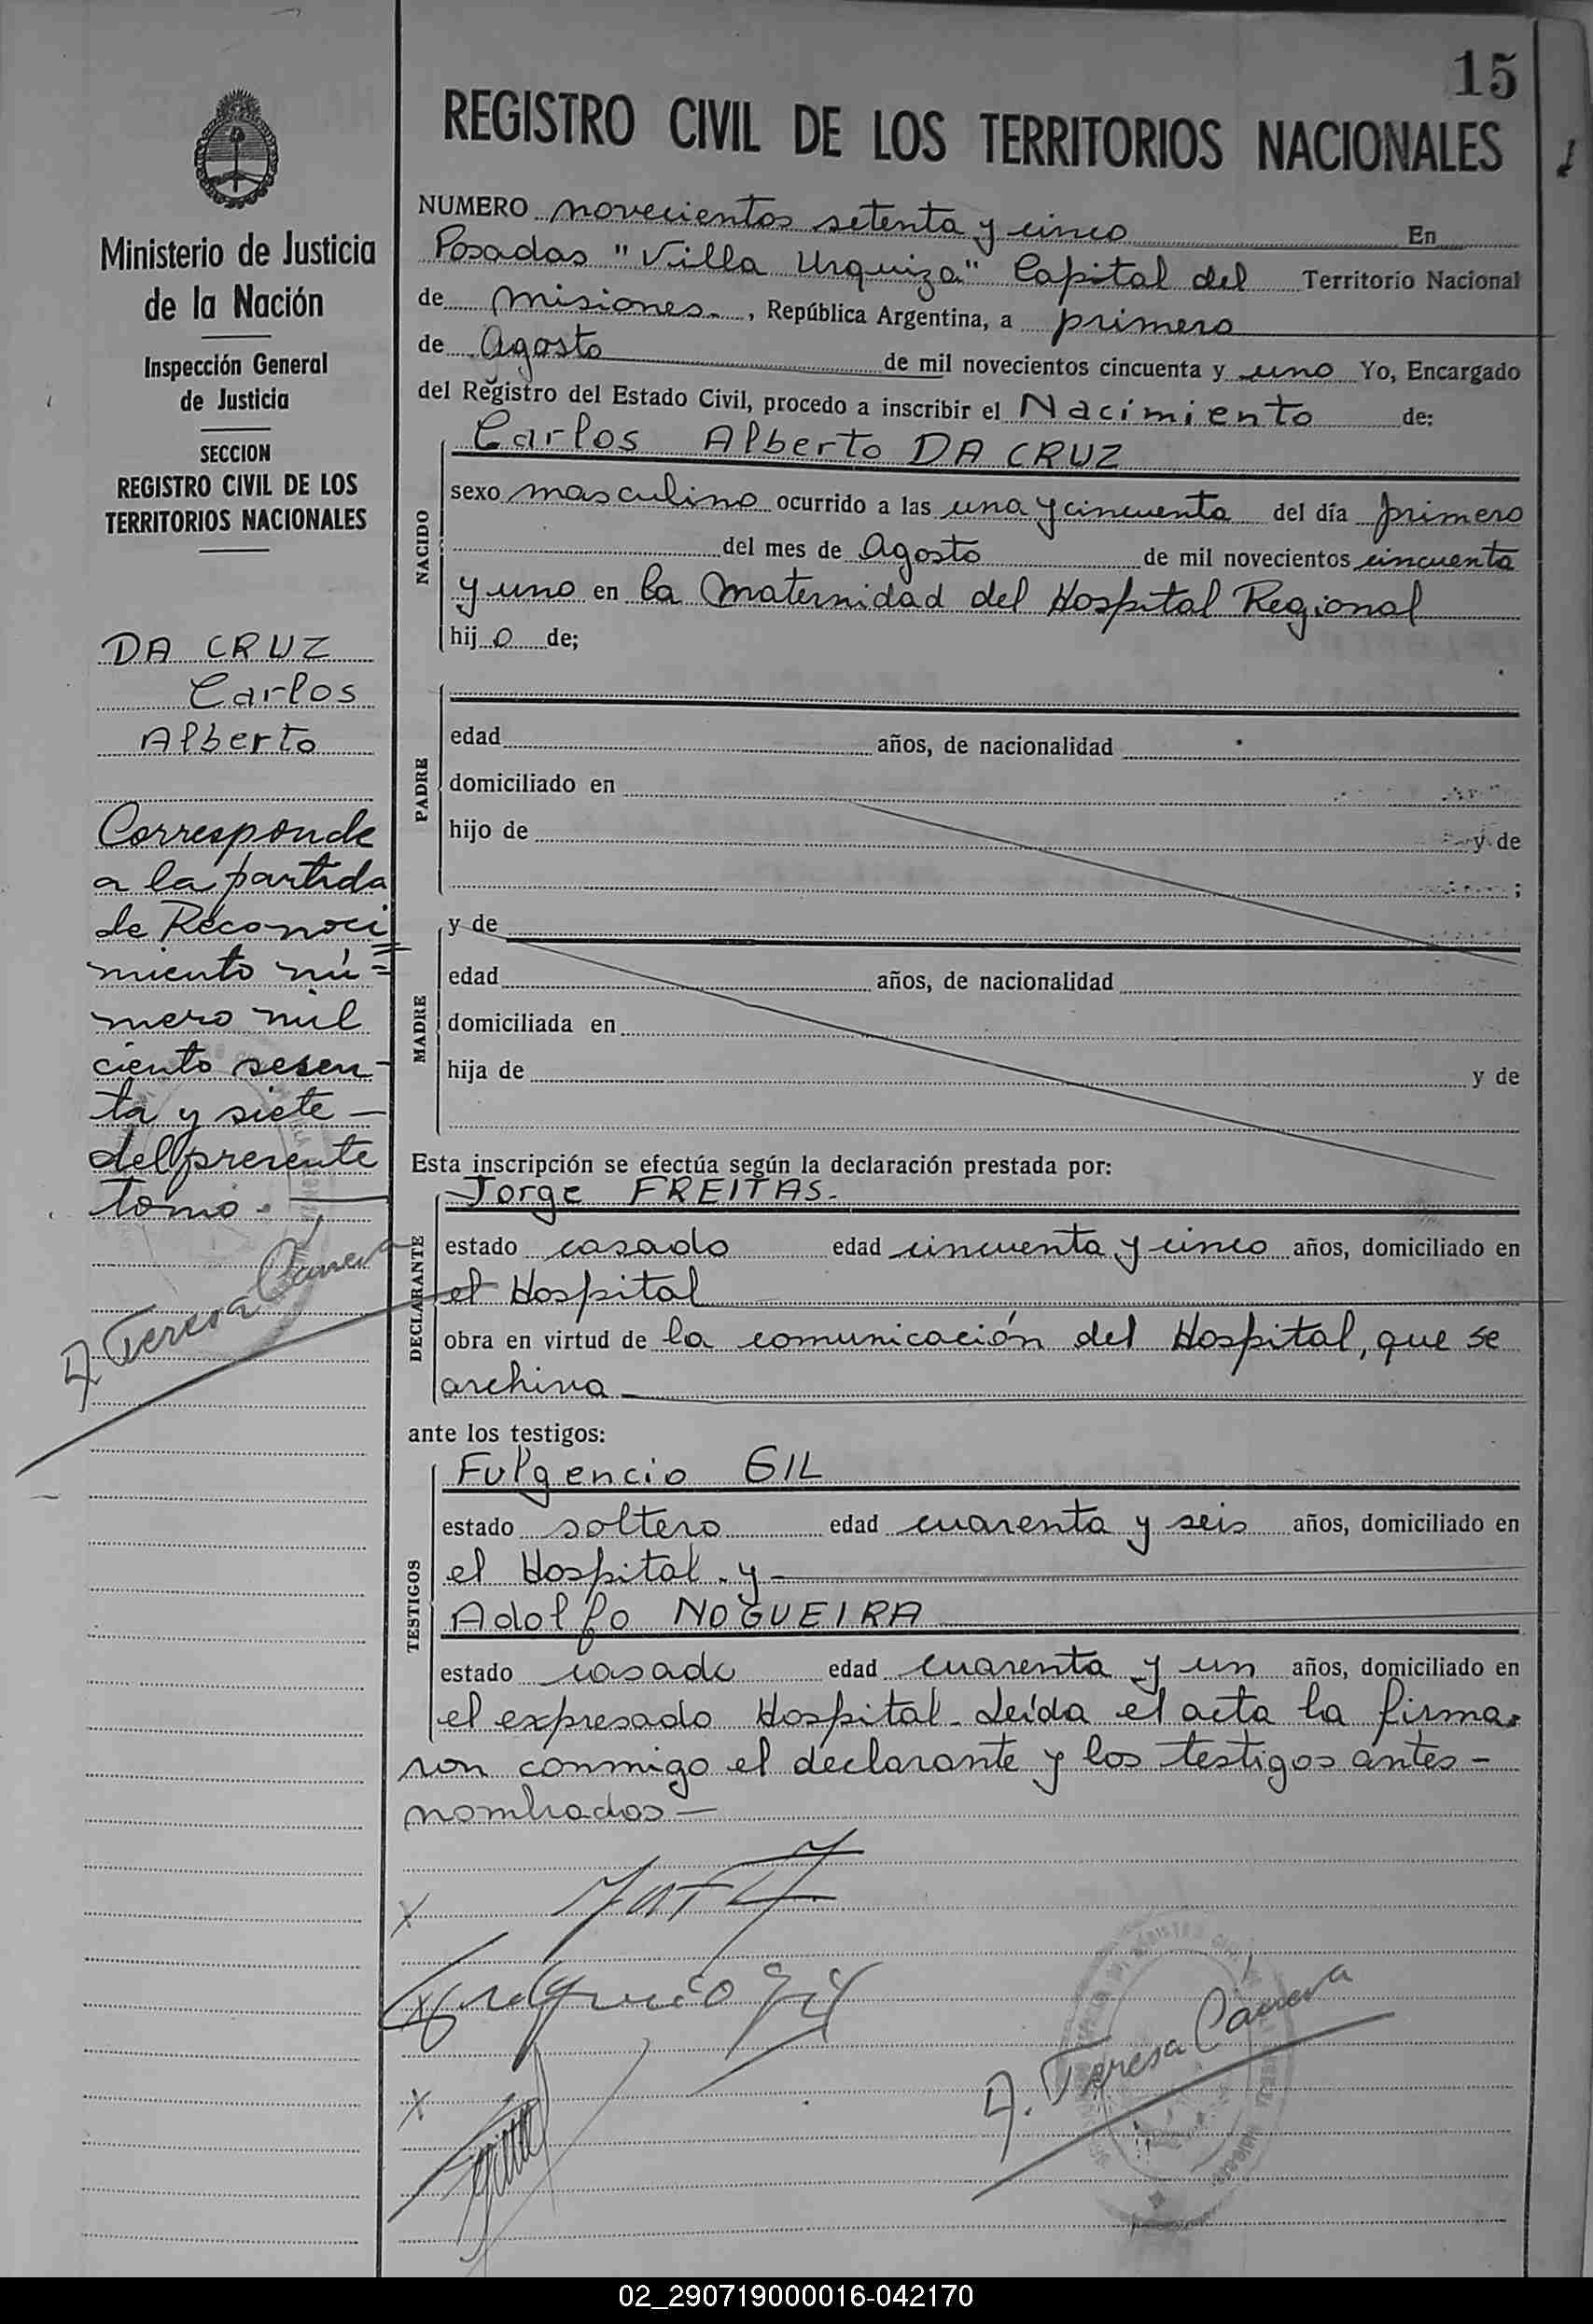 15
REGISTRO CIVIL DE LOS TERRITORIOS NACIONALES
Ministerio de Justicia
de la Nación
Inspección General
de Justicia
SECCION
REGISTRO CIVIL DE LOS
TERRITORIOS NACIONALES
DA CRUZ
Carlos
Alberto
Corresponde
a la partida
de Reconoci
miento nú=
mero mil
ciento sesen-
ta y siete -
del presente
tomo.
A. Teresa
NUMERO novecientos setenta y cinco En
Posadas "Villa Urquiza" Capital del Territorio Nacional
de misiones., República Argentina, a primero
de Agosto de mil novecientos cincuenta y uno Yo, Encargado
del Registro del Estado Civil, procedo a inscribir el Nacimiento de:
NACIDO
Carlos Alberto DA CRUZ
sexo masculino ocurrido a las una y cincuenta del día primero
del mes de Agosto de mil novecientos cincuenta
y uno en la Maternidad del Hospital Regional
hijo de;
PADRE
edad años, de nacionalidad
domiciliado en
hijo de y de
;
MADRE
y de
edad años, de nacionalidad
domiciliada en
hija de y de
Esta inscripción se efectúa según la declaración prestada por:
DECLARANTE
Jorge FREITAS.
estado casado edad cincuenta y cinco años, domiciliado en
el Hospital
obra en virtud de la comunicación del Hospital, que se
archiva
ante los testigos:
TESTIGOS
Fulgencio GIL
estado soltero edad cuarenta y seis años, domiciliado en
el Hospital - y
Adolfo NOGUEIRA
estado casado edad cuarenta y un años, domiciliado en
el expresado Hospital - Leída el acta la firma-
ron conmigo el declarante y los testigos antes -
nombrados -
x
x Fulgencio Gil
x
A. Teresa
02_290719000016-042170